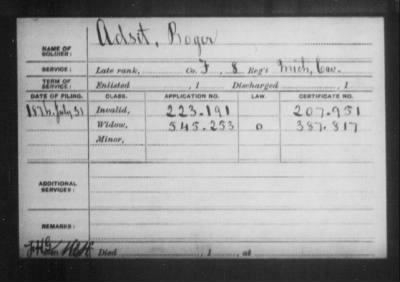 Adsit, Roger
NAME OF SOLDIER:
SERVICE: Late rank, Co. F, 8 Reg't Mich. Cav.
TERM OF SERVICE: Enlisted , 1 Discharged , 1
DATE OF FILING. CLASS. APPLICATION NO. LAW. CERTIFICATE NO.
1876, July 31 Invalid, 223.191 207.951
Widow, 545.253 0 387.817
Minor,
ADDITIONAL SERVICES:
REMARKS:
Died , 1 , at